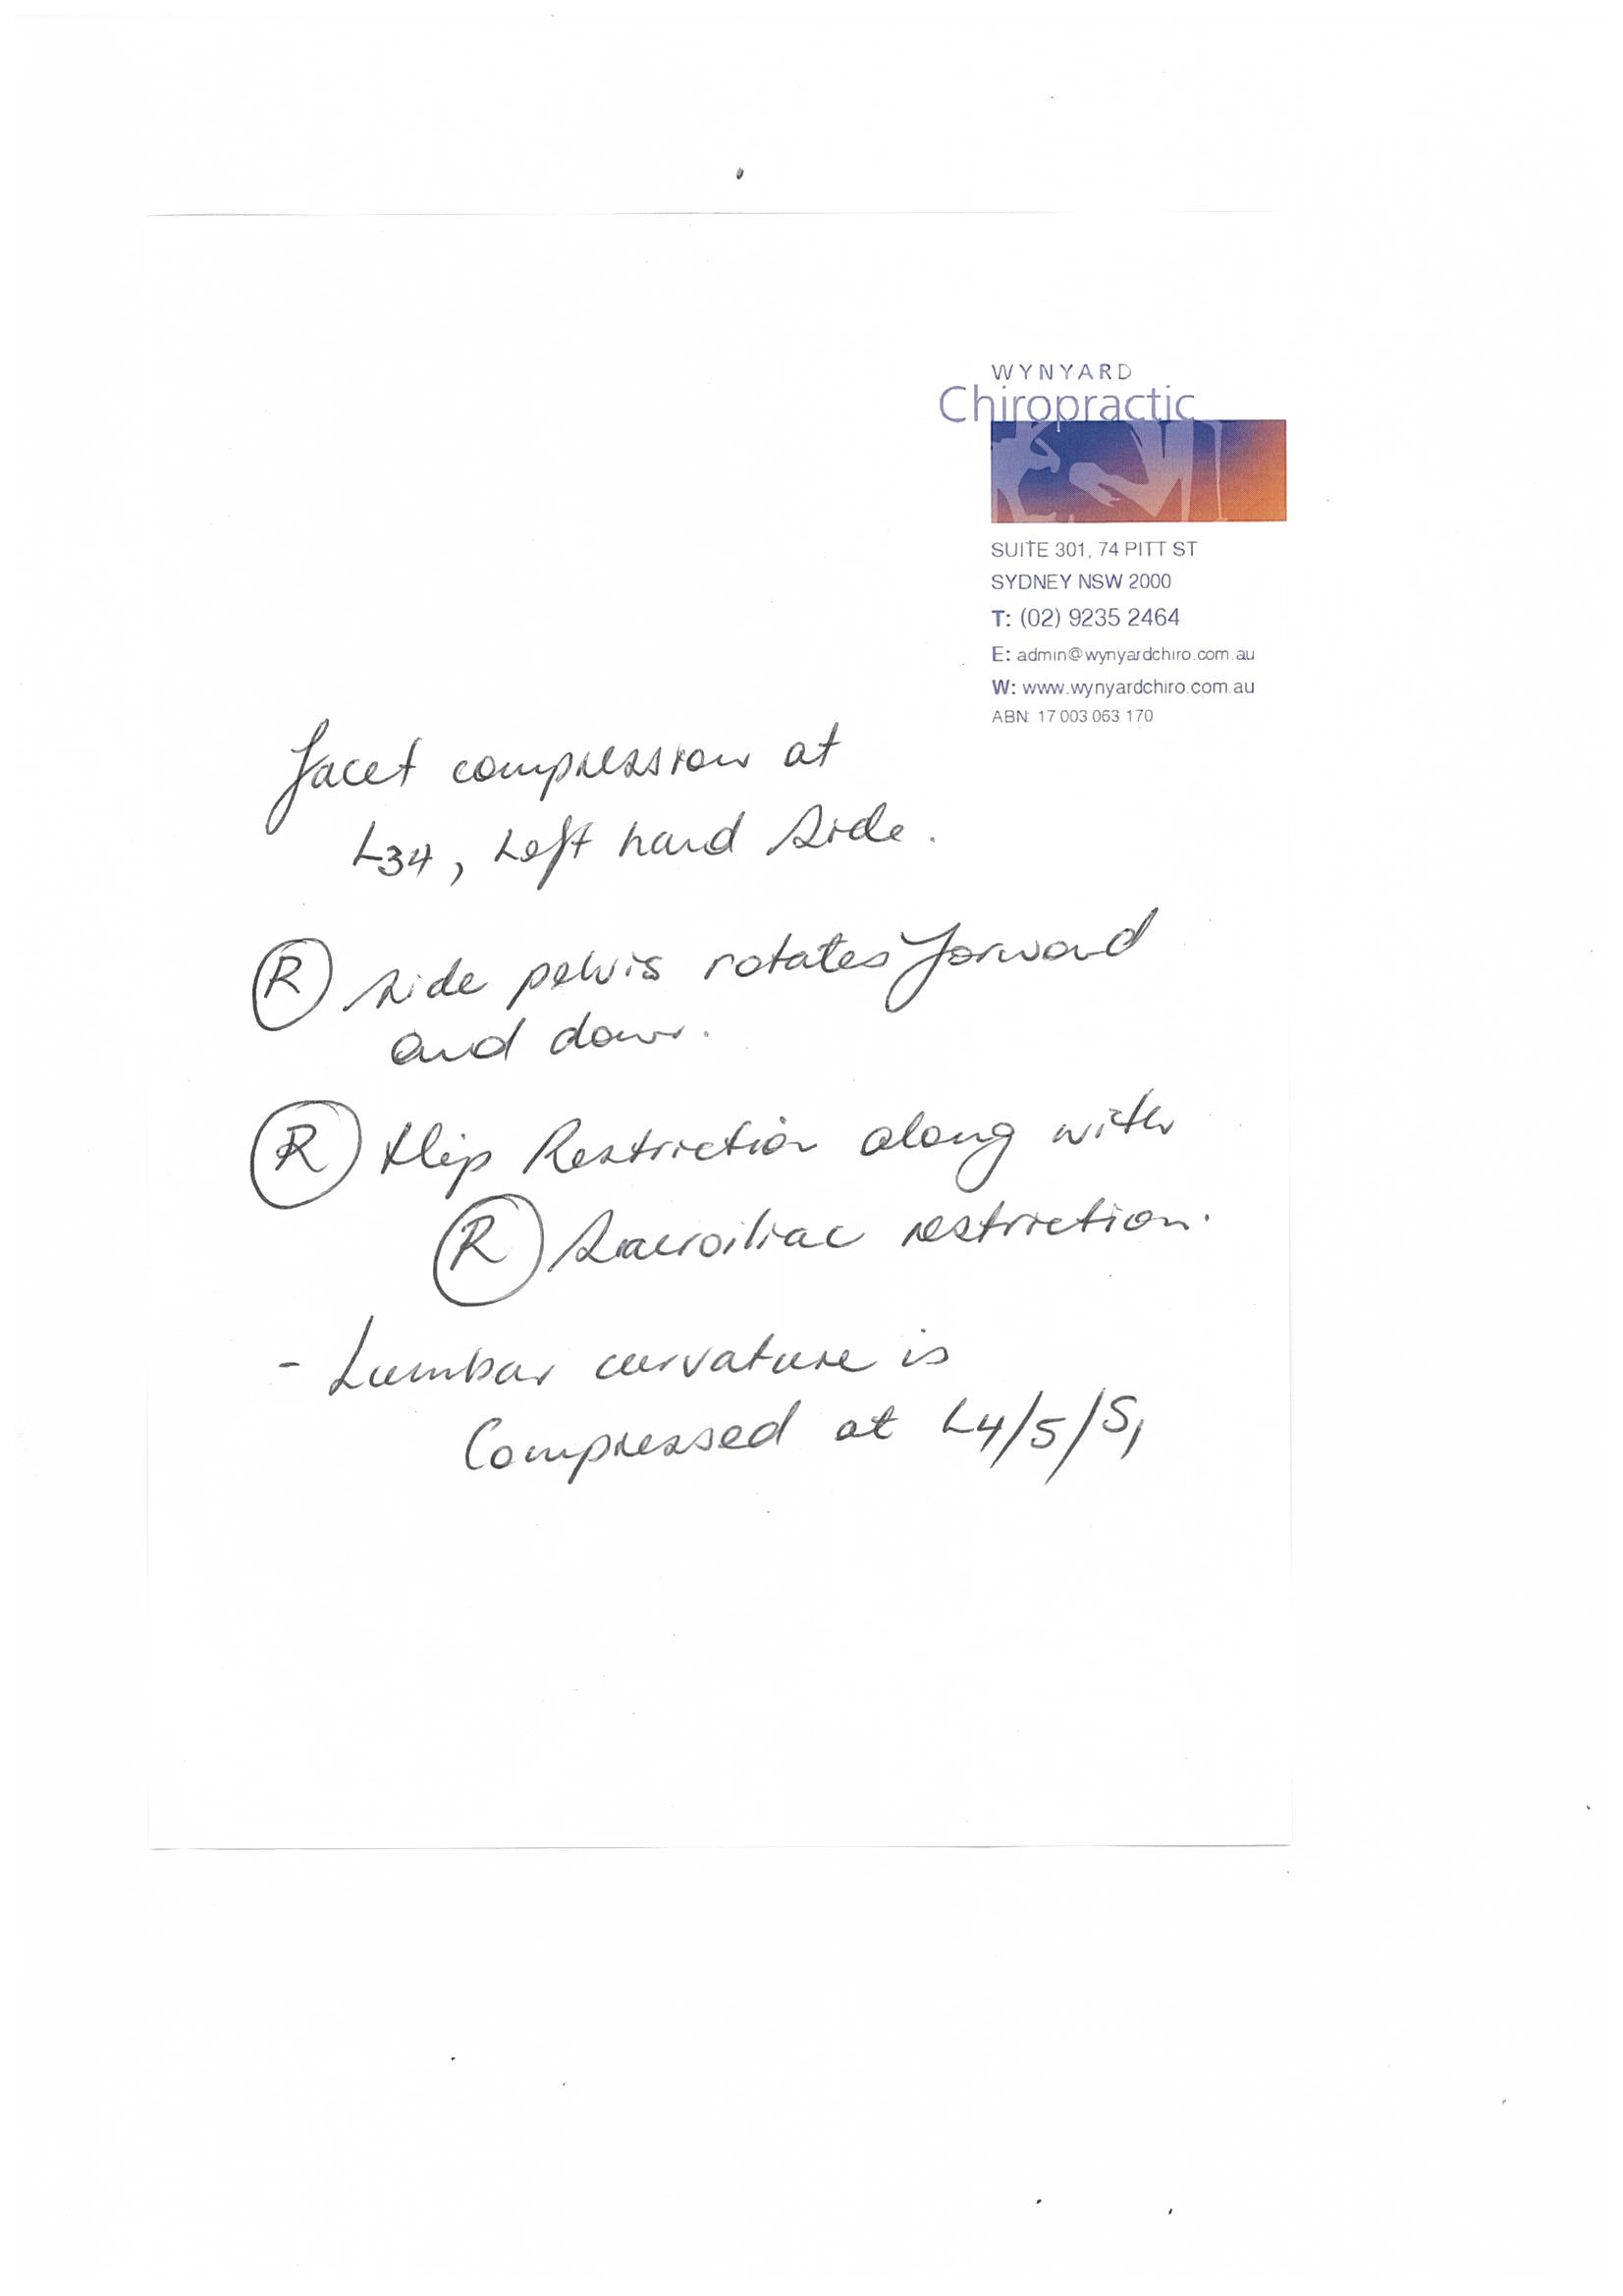 WYNYARD
Chiropractic
SUITE 301, 74 PITT ST
SYDNEY NSW 2000
T: (02) 9235 2464
E: admin@wynyardchiro.com.au
W: www.wynyardchiro.com.au
ABN: 17 003 063 170
Facet compression at
L34, Left hand side.
(R) side pelvis rotates forward
and down.
(R) Hip Restriction along with
(R) Sacroiliac restriction.
- Lumbar curvature is
Compressed at L4/5/S1